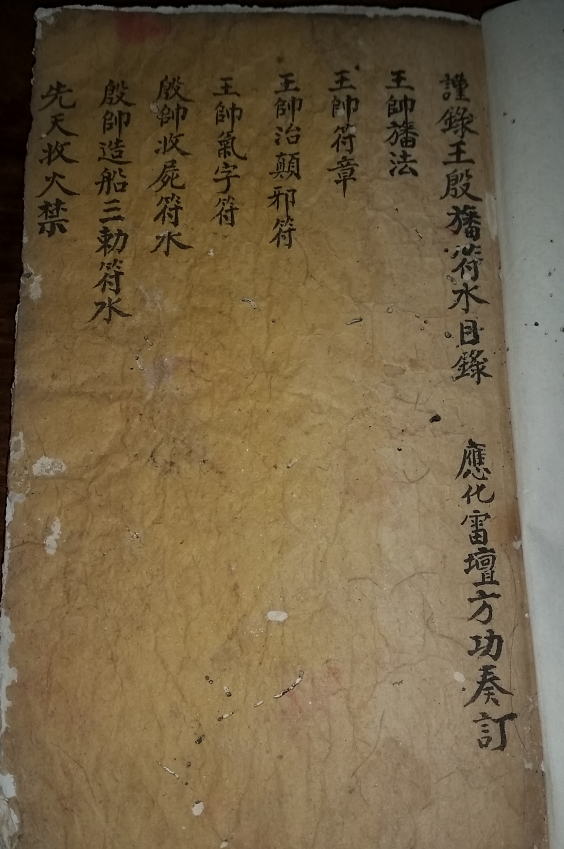 謹錄王殷旛符水目錄 應化雷壇方功奏訂
王帥旛法
王帥符章
王帥治顛邪符
王帥氣字符
殷帥收屍符水
殷帥造船三勅符水
先天收火禁